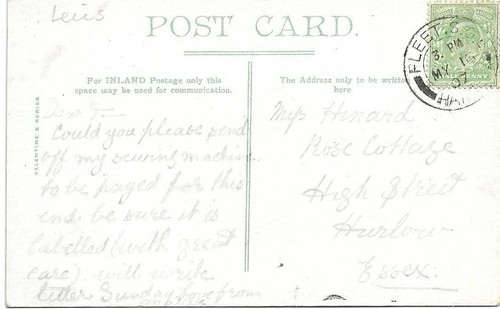 Leics
POST CARD.
For INLAND Postage only this
space may be used for communication.
The Address only to be written
here
VALENTINE'S SERIES
FLEET S.O.
3 PM
MY
07
HALF PENNY
Dear
Could you please send
off my sewing machine
to be payed for this
end. be sure it is
labelled (with great
care). will write
letter Sunday love from
Miss Henard
Rose Cottage
High Street
Hurlow
Essex.